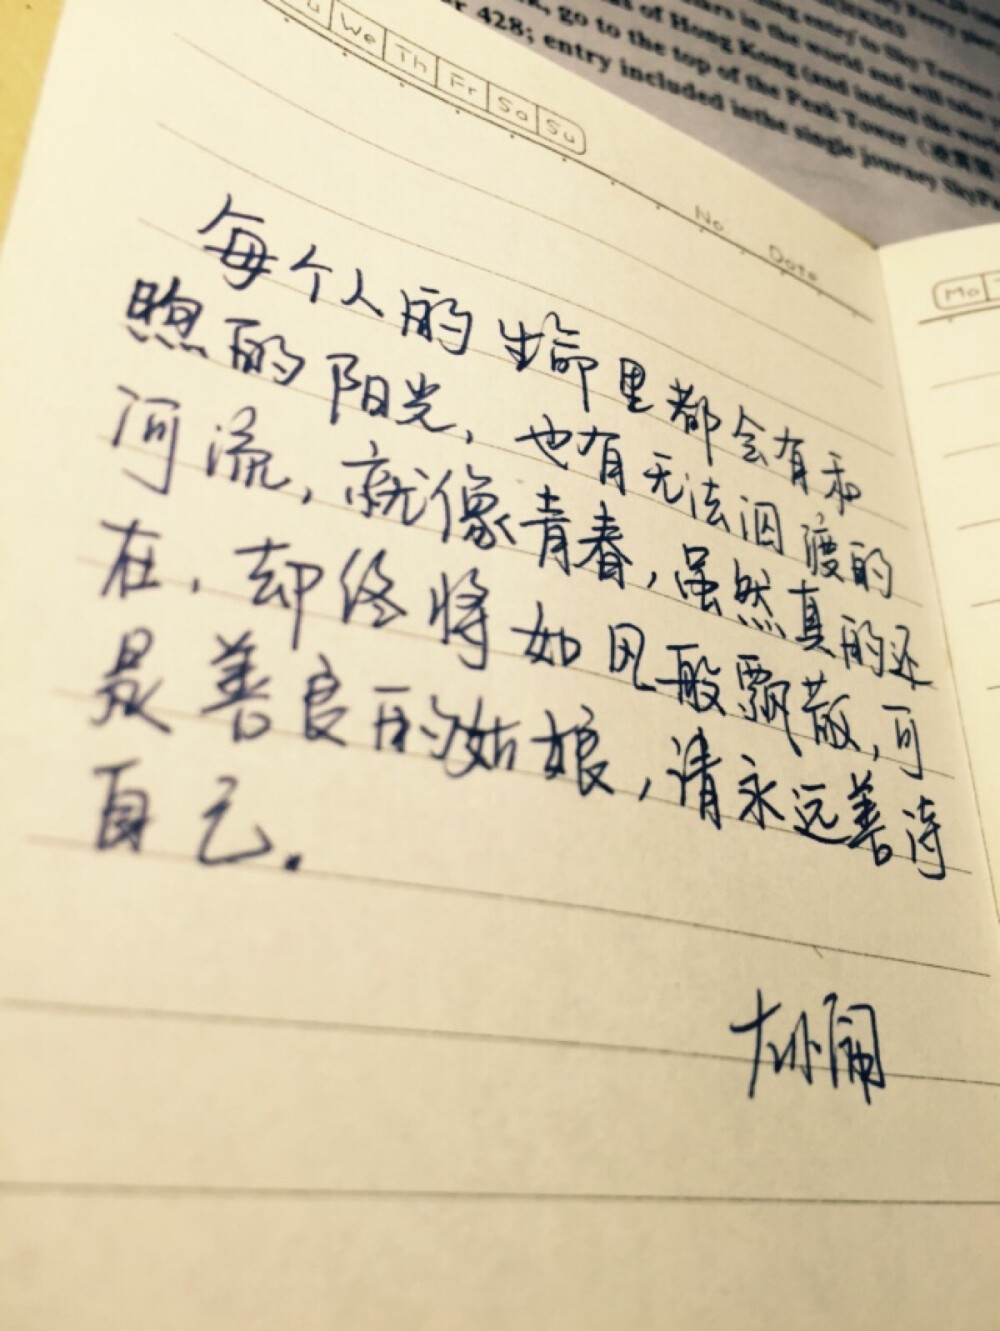 r 428; entry included inthe single journey SkyPa
go to the top of the Peak Tower
of Hong Kong (and indeed the wor
in the world and will take
entry to Sky Terrac
We Th Fr Sa Su
No. Date
Mo
每个人的生命里都会有和
煦的阳光，也有无法泅渡的
河流，就像青春，虽然真的还
在，却终将如风般飘散，可
是善良的姑娘，请永远善待
自己。